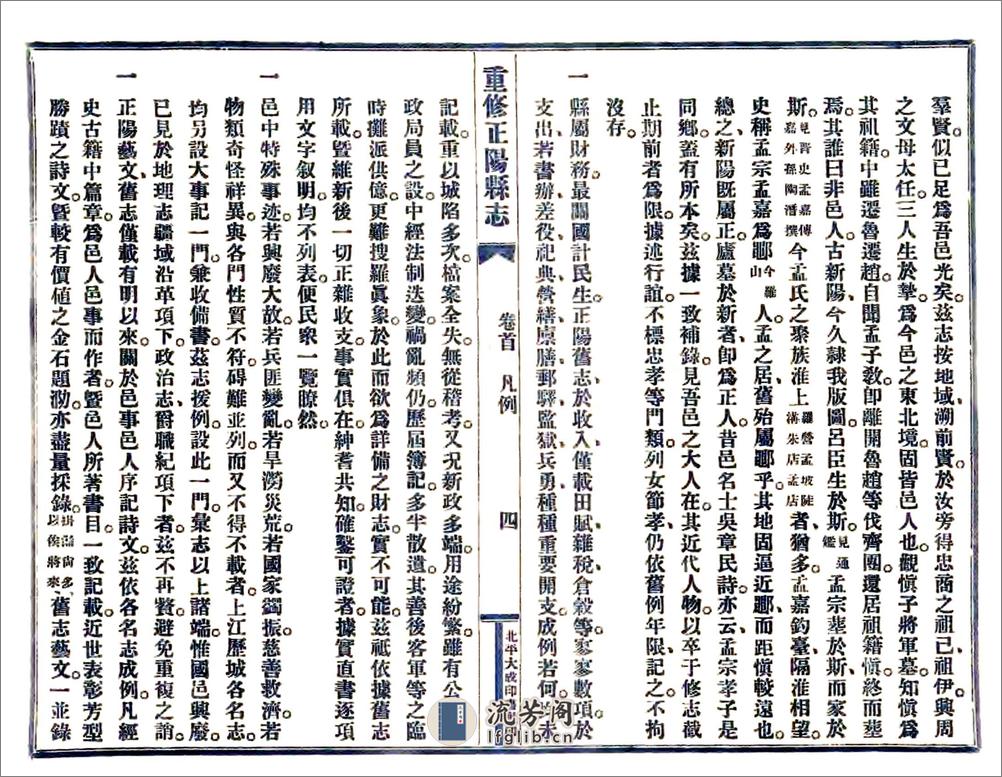 羣賢似已足爲吾邑光矣茲志按地域溯前賢於汝旁得忠商之祖己祖伊興周
之文母太任三人生於摯爲今邑之東北境固皆邑人也觀愼子將軍墓知愼爲
其祖籍中雖遷魯遷趙自聞孟子敎卽離開魯趙等伐齊團還居祖籍愼終而塟
焉其誰曰非邑人古新陽今久隸我版圖呂臣生於斯見通鑑孟宗塟於斯而家於
斯見晉史孟嘉傳嘉外孫陶潛撰今孟氏之聚族淮上羅營孟坡陡溝朱店孟店者猶多孟嘉釣臺隔淮相望
史稱孟宗孟嘉爲鄳今羅山人孟之居舊殆屬鄳乎其地固逼近鄳而距愼較遠也
總之新陽旣屬正廬墓於新者卽爲正人昔邑名士吳章民詩亦云孟宗孝子是
同鄉蓋有所本矣茲據一致補錄見吾邑之大人在其近代人物以卒于修志截
止期前者爲限據述行誼不標忠孝等門類列女節孝仍依舊例年限記之不拘
沒存
一縣屬財務最關國計民生正陽舊志於收入僅載田賦雜稅倉穀等寥寥數項於
支出若書辦差役祀典營繕廩膳郵驛監獄兵勇種種重要開支成例若何並未
重修正陽縣志 卷首 凡例 四 北平大成印書局印
記載重以城陷多次檔案全失無從稽考又况新政多端用途紛繁雖有公
政局員之設中經法制迭變禍亂頻仍歷屆簿記多半散遺其善後客軍等之臨
時攤派供億更難搜羅眞象於此而欲爲詳備之財志實不可能茲祇依據舊志
所載曁維新後一切正雜收支事實俱在紳耆共知確鑿可證者據實直書逐項
用文字叙明均不列表便民衆一覽瞭然
一邑中特殊事迹若興廢大故若兵匪變亂若旱澇災荒若國家蠲振慈善救濟若
物類奇怪祥異與各門性質不符碍難並列而又不得不載者上江歷城各名志
均另設大事記一門兼收備書茲志援例設此一門彙志以上諸端惟國邑興廢
已見於地理志疆域沿革項下政治志爵職紀項下者茲不再贅避免重複之誚
一正陽藝文舊志僅載有明以來關於邑事邑人序記詩文茲依各名志成例凡經
史古籍中篇章爲邑人邑事而作者曁邑人所著書目一致記載近世表彰芳型
勝蹟之詩文曁較有價値之金石題泐亦盡量採錄掛漏尙多以俟將來舊志藝文一並錄
流芳阁
lfglib.cn